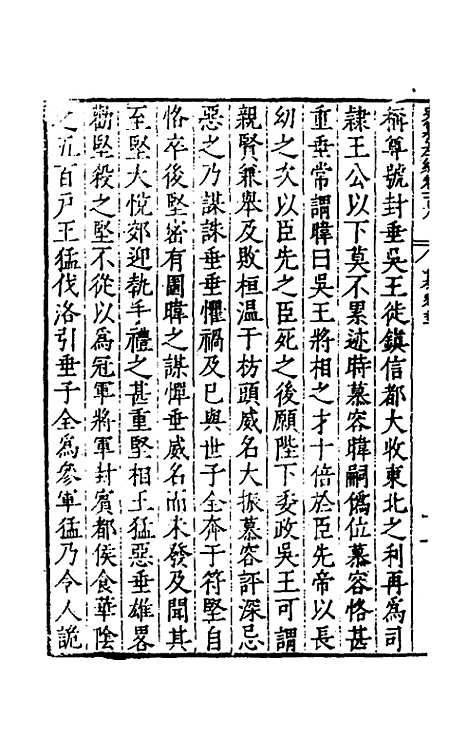 稱尊號封垂吳王徙鎮信都大收東北之利再為司
隷王公以下莫不累迹時慕容暐嗣僞位慕容恪甚
重垂常謂暐曰吳王將相之才十倍於臣先帝以長
幼之次以臣先之臣死之後願陛下委政吳王可謂
親賢兼舉及敗桓温于枋頭威名大振慕容評深忌
惡之乃謀誅垂垂懼禍及已與世子全奔于符堅自
恪卒後堅密有圖暐之謀憚垂威名而未發及聞其
至堅大悅郊迎執手禮之甚重堅相王猛惡垂雄畧
勸堅殺之堅不從以為冠軍將軍封賓都侯食華陰
之五百戶王猛伐洛引垂子全為參軍猛乃令人詭